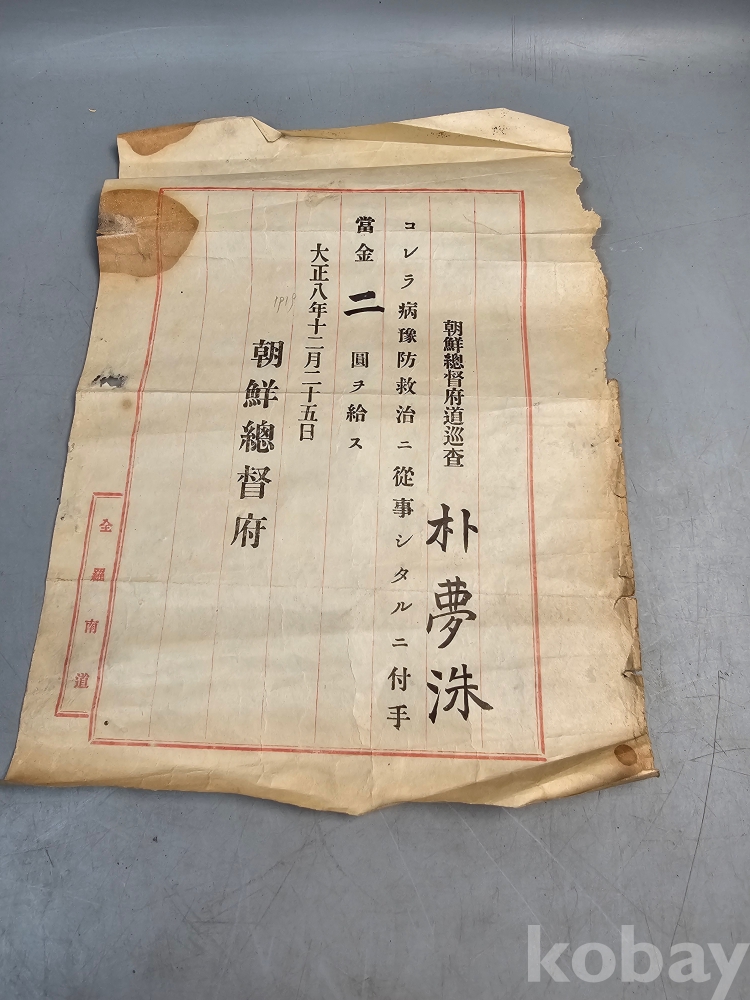 朝鮮總督府道巡査 朴夢洙
コレラ病豫防救治ニ從事シタルニ付手
當金二圓ヲ給ス
大正八年十二月二十五日
1919
朝鮮總督府
全羅南道
kobay